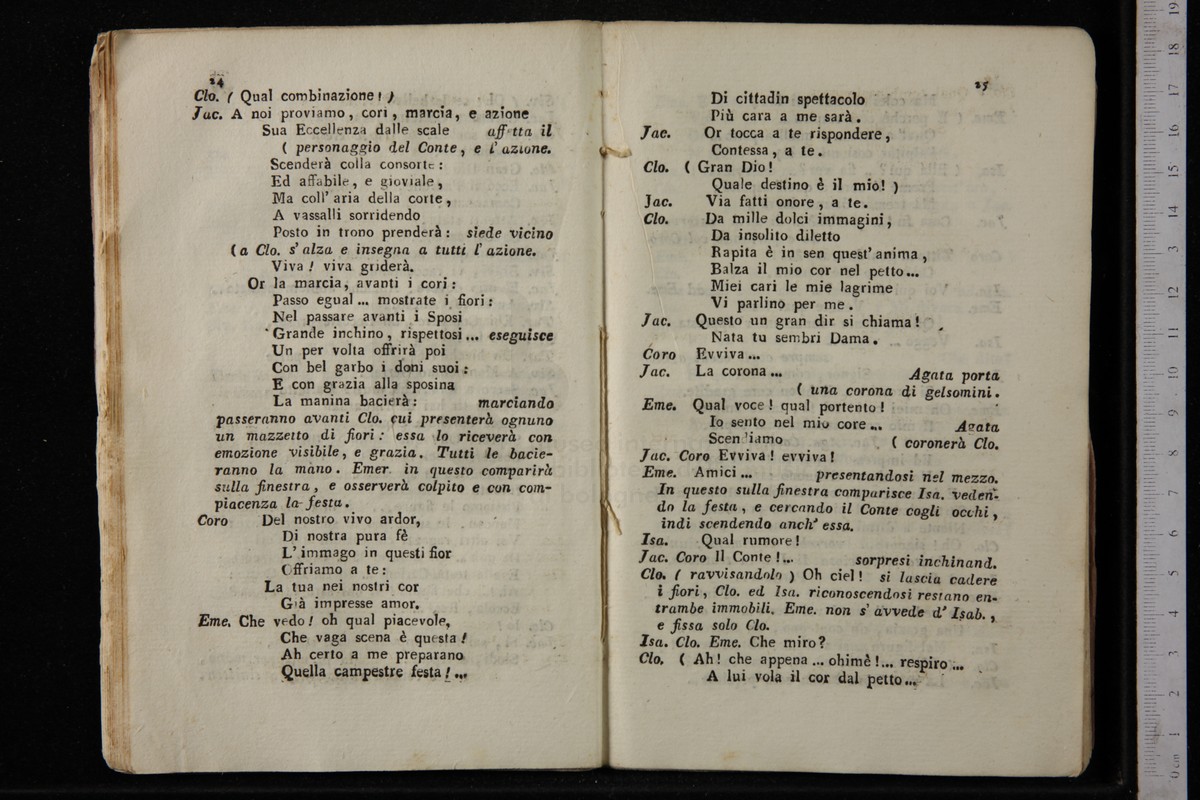 24
Clo. ( Qual combinazione! )
Jac. A noi proviamo, cori, marcia, e azione
Sua Eccellenza dalle scale aff tta il
( personaggio del Conte, e l' azione.
Scenderà colla consorte:
Ed affabile, e gioviale,
Ma coll' aria della corte,
A vassalli sorridendo
Posto in trono prenderà: siede vicino
(a Clo. s' alza e insegna a tutti l' azione.
Viva! viva griderà.
Or la marcia, avanti i cori:
Passo egual... mostrate i fiori:
Nel passare avanti i Sposi
Grande inchino, rispettosi... eseguisce
Un per volta offrirà poi
Con bel garbo i doni suoi:
E con grazia alla sposina
La manina bacierà: marciando
passeranno avanti Clo. cui presenterà ognuno
un mazzetto di fiori: essa lo riceverà con
emozione visibile, e grazia. Tutti le bacie-
ranno la mano. Emer. in questo comparirà
sulla finestra, e osserverà colpito e con com-
piacenza la festa.
Coro Del nostro vivo ardor,
Di nostra pura fè
L' immago in questi fior
Offriamo a te:
La tua nei nostri cor
Già impresse amor.
Eme. Che vedo! oh qual piacevole,
Che vaga scena è questa!
Ah certo a me preparano
Quella campestre festa!...
25
Di cittadin spettacolo
Più cara a me sarà.
Jac. Or tocca a te rispondere,
Contessa, a te.
Clo. ( Gran Dio!
Quale destino è il mio! )
Jac. Via fatti onore, a te.
Clo. Da mille dolci immagini,
Da insolito diletto
Rapita è in sen quest' anima,
Balza il mio cor nel petto...
Miei cari le mie lagrime
Vi parlino per me.
Jac. Questo un gran dir si chiama!
Nata tu sembri Dama.
Coro Evviva...
Jac. La corona... Agata porta
( una corona di gelsomini.
Eme. Qual voce! qual portento!
Io sento nel mio core... Agata
Scendiamo ( coronerà Clo.
Jac. Coro Evviva! evviva!
Eme. Amici... presentandosi nel mezzo.
In questo sulla finestra comparisce Isa. veden-
do la festa, e cercando il Conte cogli occhi,
indi scendendo anch' essa.
Isa. Qual rumore!
Jac. Coro Il Conte!... sorpresi inchinand.
Clo. ( ravvisandolo ) Oh ciel! si lascia cadere
i fiori, Clo. ed Isa. riconoscendosi restano en-
trambe immobili. Eme. non s' avvede d' Isab.,
e fissa solo Clo.
Isa. Clo. Eme. Che miro?
Clo. ( Ah! che appena... ohimè!... respiro...
A lui vola il cor dal petto...